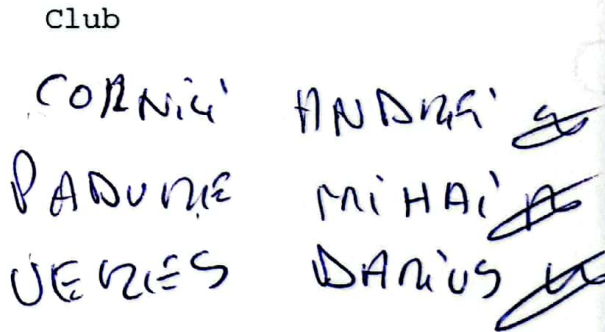 Club
CORNICI ANDREI
PADURE MIHAI
VERES DARIUS